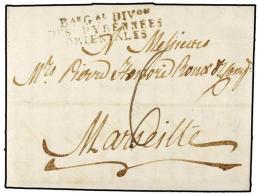 Bau Gal DIVon
DES PYRENNÉES
ORIENTALES
A Messieurs
Mrs Pierre Honoré Roux
Marseille